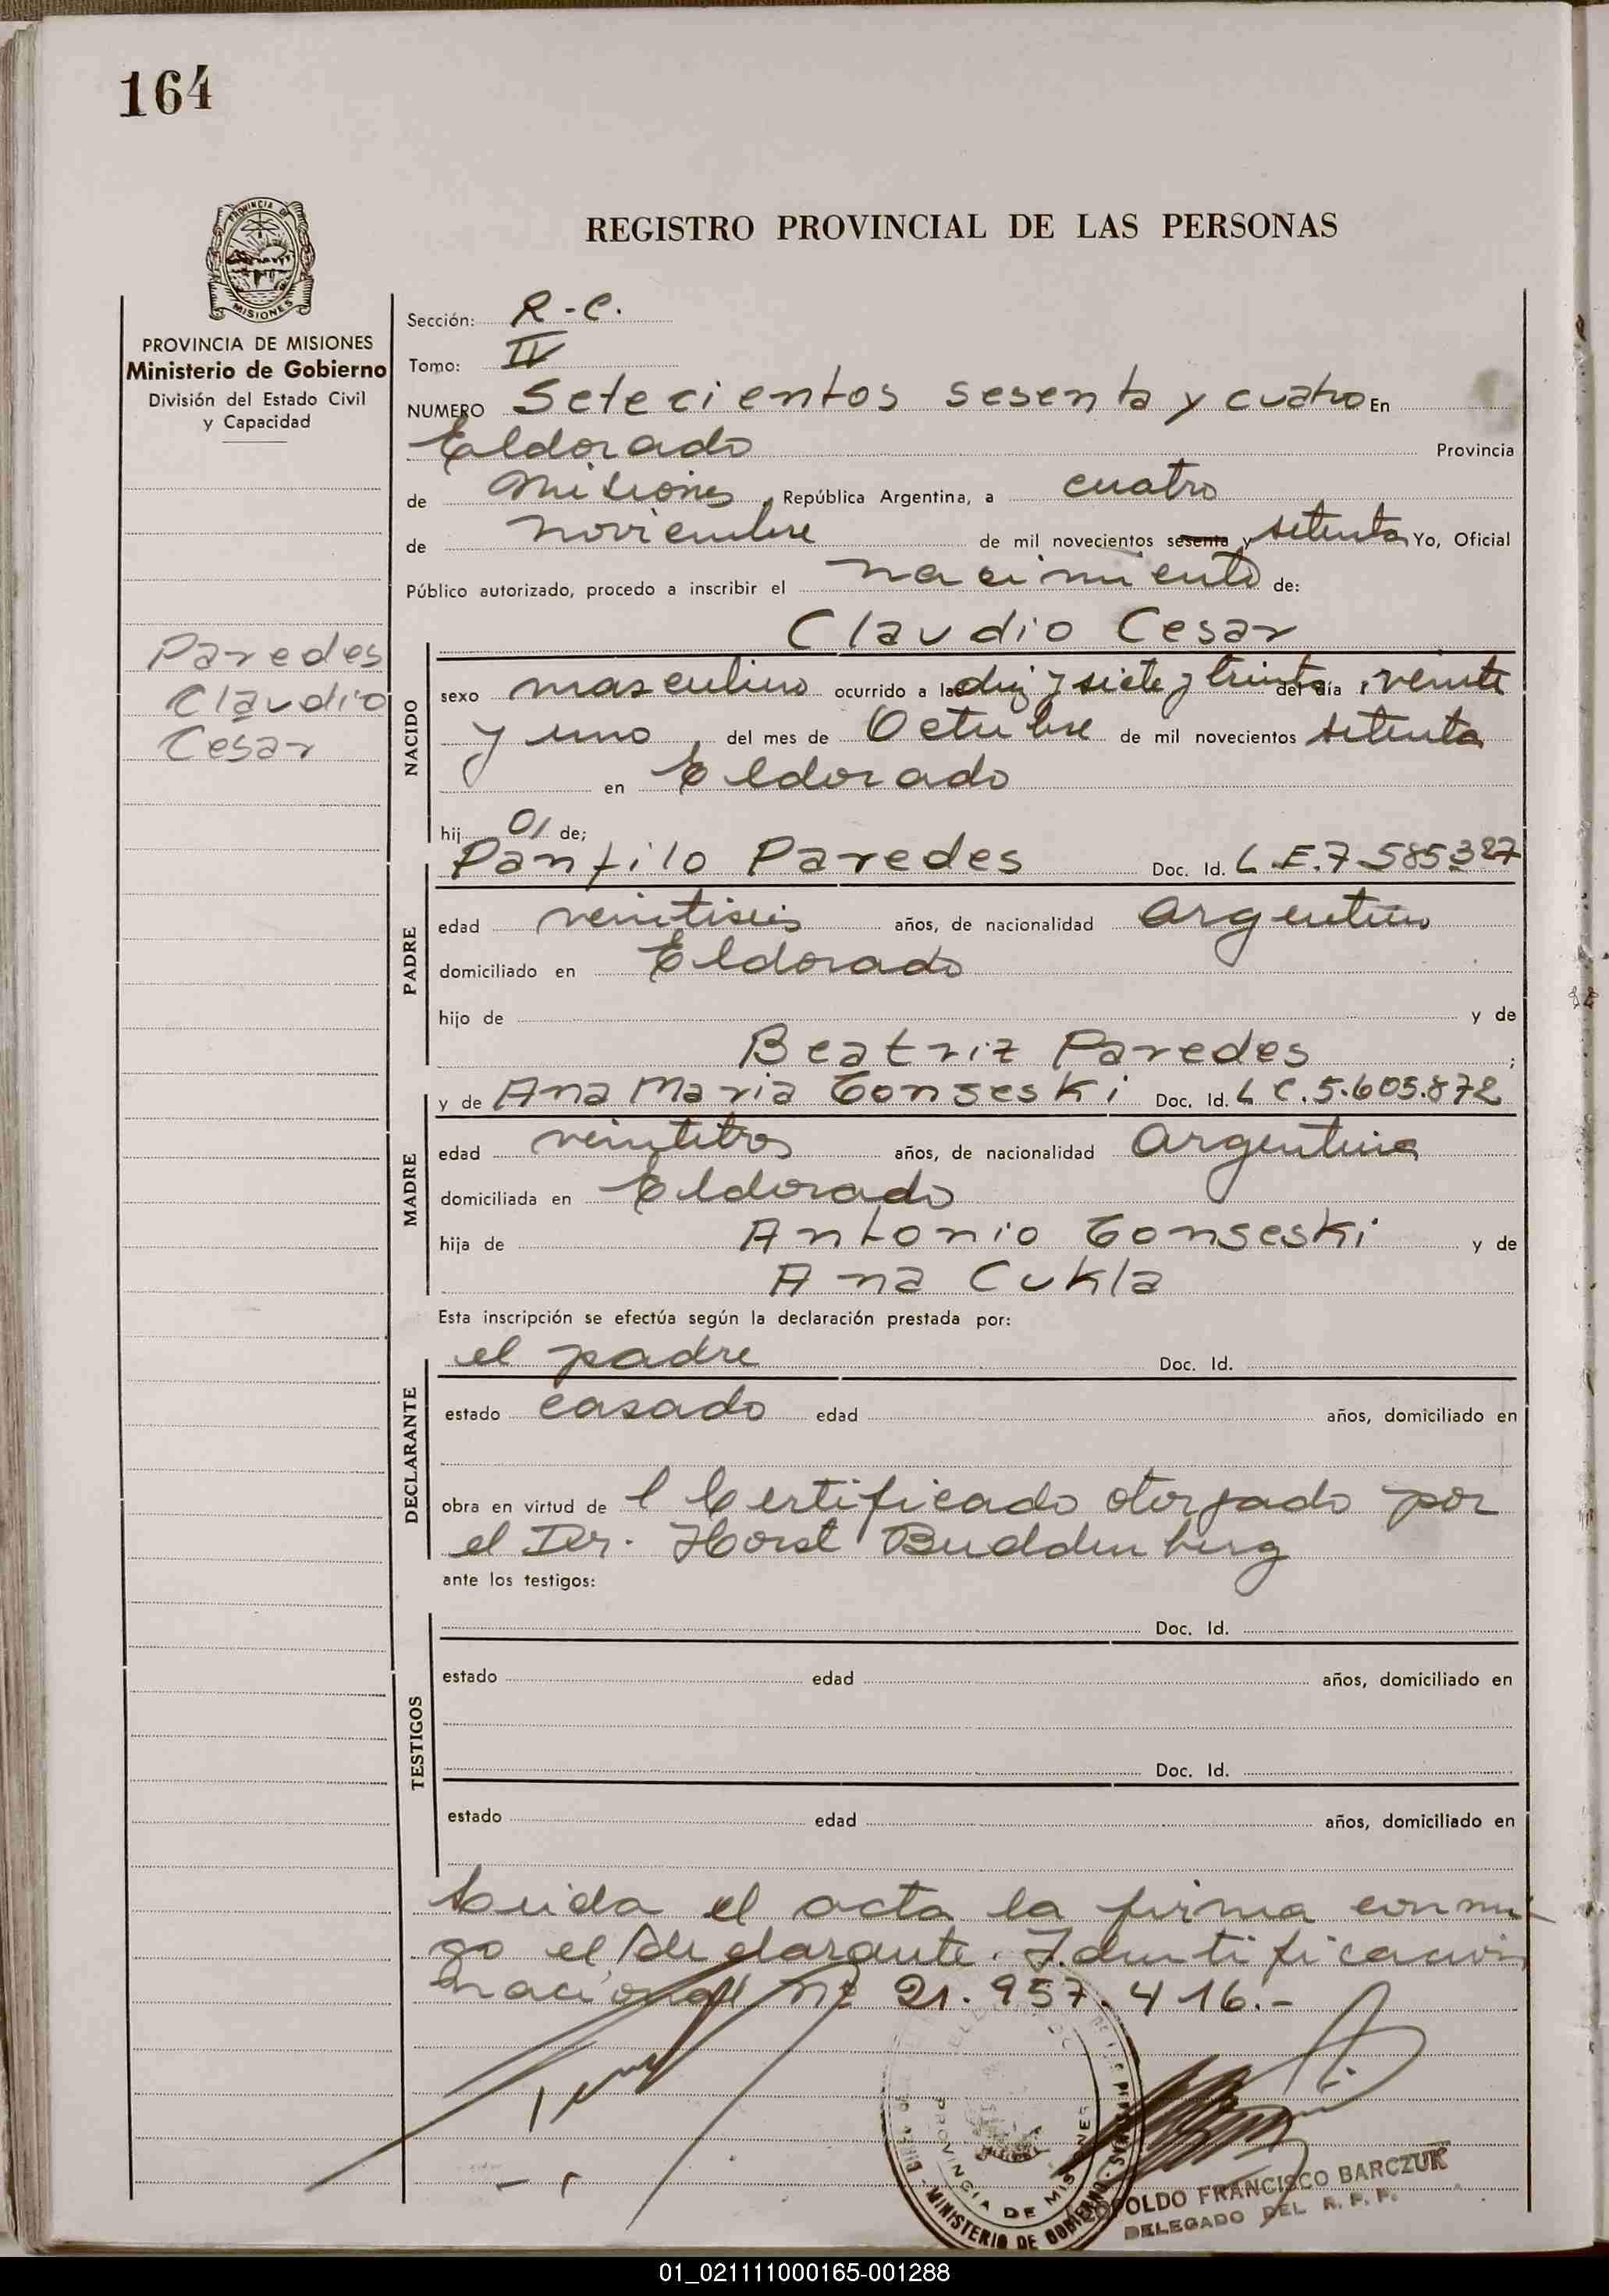 164
PROVINCIA DE
MISIONES
PROVINCIA DE MISIONES
Ministerio de Gobierno
División del Estado Civil
y Capacidad
Paredes
Claudio
Cesar
REGISTRO PROVINCIAL DE LAS PERSONAS
Sección: R-C.
Tomo: IV
NUMERO Setecientos sesenta y cuatro En
Eldorado Provincia
de Misiones, República Argentina, a cuatro
de noviembre de mil novecientos sesenta y setenta Yo, Oficial
Público autorizado, procedo a inscribir el nacimiento de:
Claudio Cesar
NACIDO
sexo masculino ocurrido a las diez y siete y treinta del día veinte
y uno del mes de Octubre de mil novecientos setenta
en Eldorado
hij o de;
Panfilo Paredes Doc. Id. L.E. 7.585.327
PADRE
edad veintiseis años, de nacionalidad argentino
domiciliado en Eldorado
hijo de y de
Beatriz Paredes;
y de Ana Maria Gonseski Doc. Id. L C. 5.605.872
MADRE
edad veintitres años, de nacionalidad argentina
domiciliada en Eldorado
hija de Antonio Gonseski y de
Ana Cukla
Esta inscripción se efectúa según la declaración prestada por:
el padre Doc. Id.
DECLARANTE
estado casado edad años, domiciliado en
obra en virtud de l Certificado otorgado por
el Dr. Horst Buddenberg
ante los testigos:
TESTIGOS
Doc. Id.
estado edad años, domiciliado en
Doc. Id.
estado edad años, domiciliado en
Leida el acta la firma conmi-
go el declarante. Identificacion
nacional nº 21.957.416.-
PROVINCIA DE MISIONES
MINISTERIO DE GOBIERNO
LEOPOLDO FRANCISCO BARCZUK
DELEGADO DEL R. P. P.
01_021111000165-001288